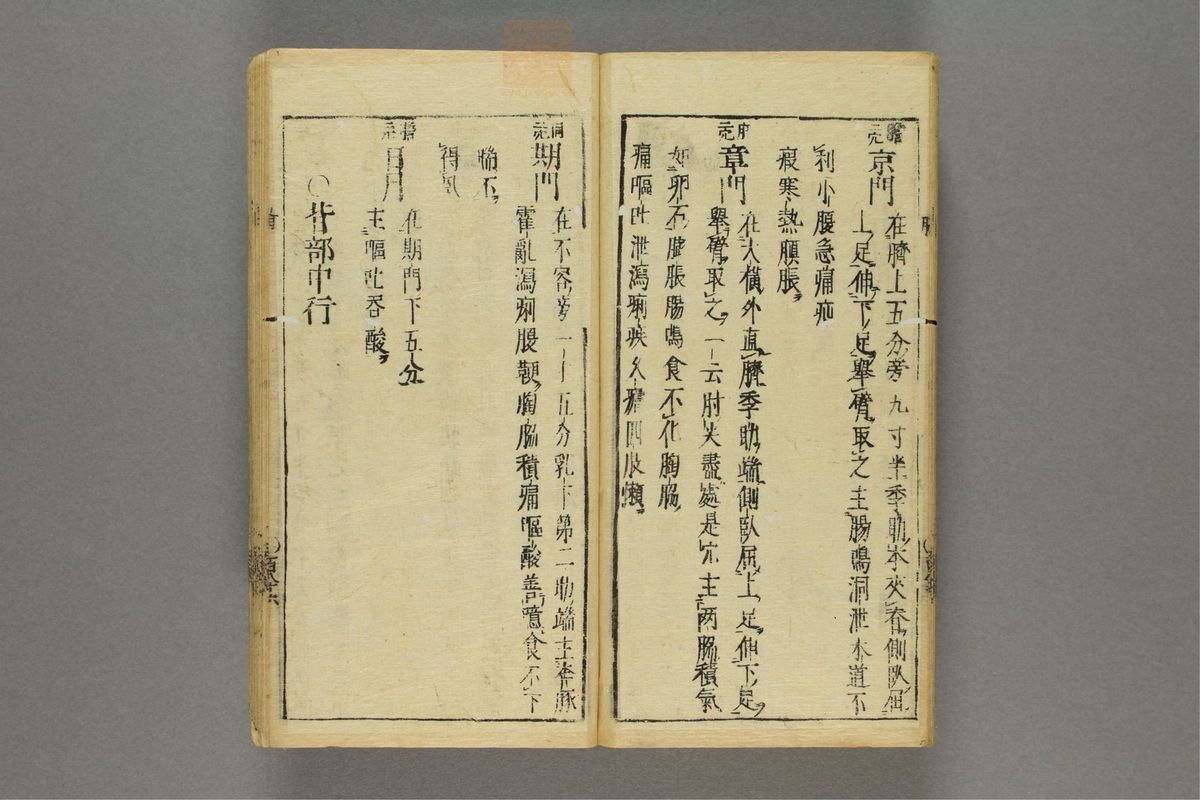 京門 在臍上五分旁九寸半季肋本夾脊側臥屈
上足伸下足舉臂取之主腸鳴洞泄水道不
利小腹急痛
寒熱䐜脹
章門 在大橫外直臍季肋端側臥屈上足伸下足
舉臂取之一云肘尖盡處是穴主兩脇積氣
如卵石臌脹腸鳴食不化胸脇
痛嘔吐泄瀉痢疾久瘧四肢懶
期門 在不容旁一寸五分乳下第二肋端主奔豚
霍亂瀉痢腹鞕胸脇積痛嘔酸善噫食不下
喘不
得臥
日月 在期門下五分
主嘔吐吞酸
○背部中行